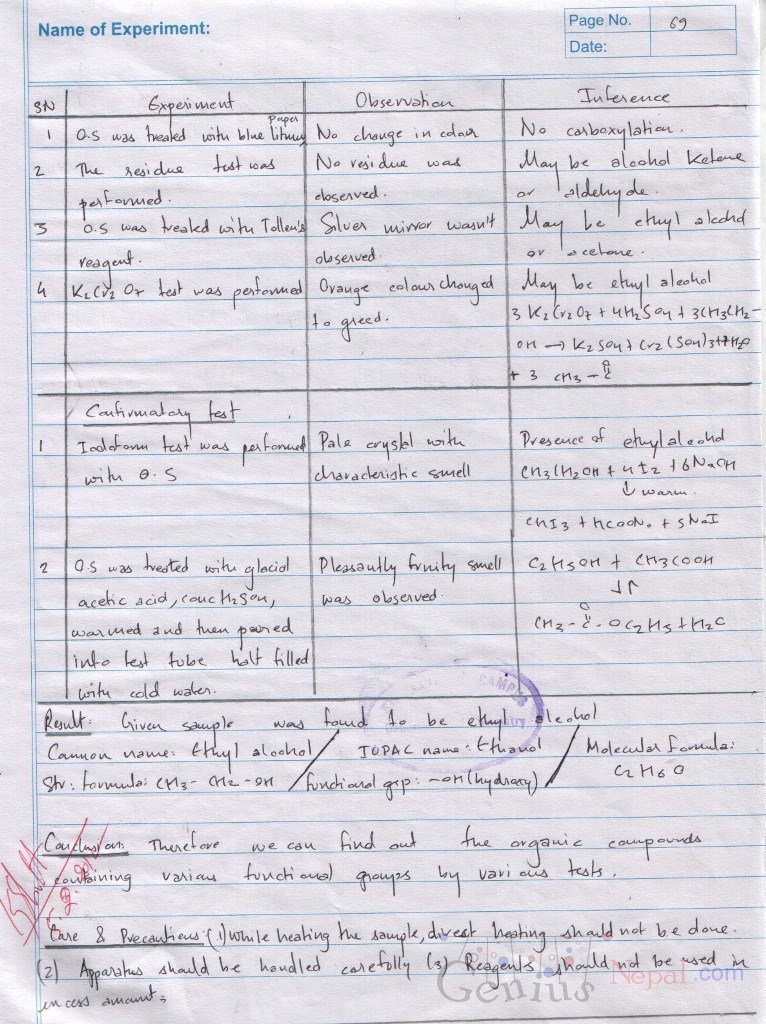 Name of Experiment:
Page No. 69
Date:
SN Experiment Observation Inference
1 O.S was treated with blue litmus Paper No change in colour No carboxylation.
2 The residue test was performed. No residue was observed. May be alcohol Ketone or aldehyde.
3 O.S was treated with Tollen's reagent. Silver mirror wasn't observed. May be ethyl alcohol or acetone.
4 K2Cr2O7 test was performed Orange colour changed to greed. May be ethyl alcohol
3 K2Cr2O7 + 4H2SO4 + 3CH3CH2-
OH → K2SO4 + Cr2(SO4)3 + 7H2O
+ 3 CH3 - C
O
Confirmatory test
1 Iodoform test was performed with O.S Pale crystal with characteristic smell Presence of ethyl alcohol
CH3CH2OH + 4I2 + 6NaOH
↓ warm.
CHI3 + HCOONa + 5NaI
2 O.S was treated with glacial acetic acid, conc H2SO4, warmed and then poured into test tube half filled with cold water. Pleasantly fruity smell was observed. C2H5OH + CH3COOH
↓↑
O
CH3 - C - OC2H5 + H2O
Result: Given sample was found to be ethyl alcohol
Common name: Ethyl alcohol / IUPAC name: Ethanol / Molecular formula:
Str: formula: CH3 - CH2 - OH / functional grp: -OH (hydroxy) / C2H6O
Conclusion: Therefore we can find out the organic compounds
containing various functional groups by various tests.
Care & Precautions: (1) While heating the sample, direct heating should not be done.
(2) Apparatus should be handled carefully (3) Reagents should not be used in
excess amount.
CAMPUS
Genius Nepal.com